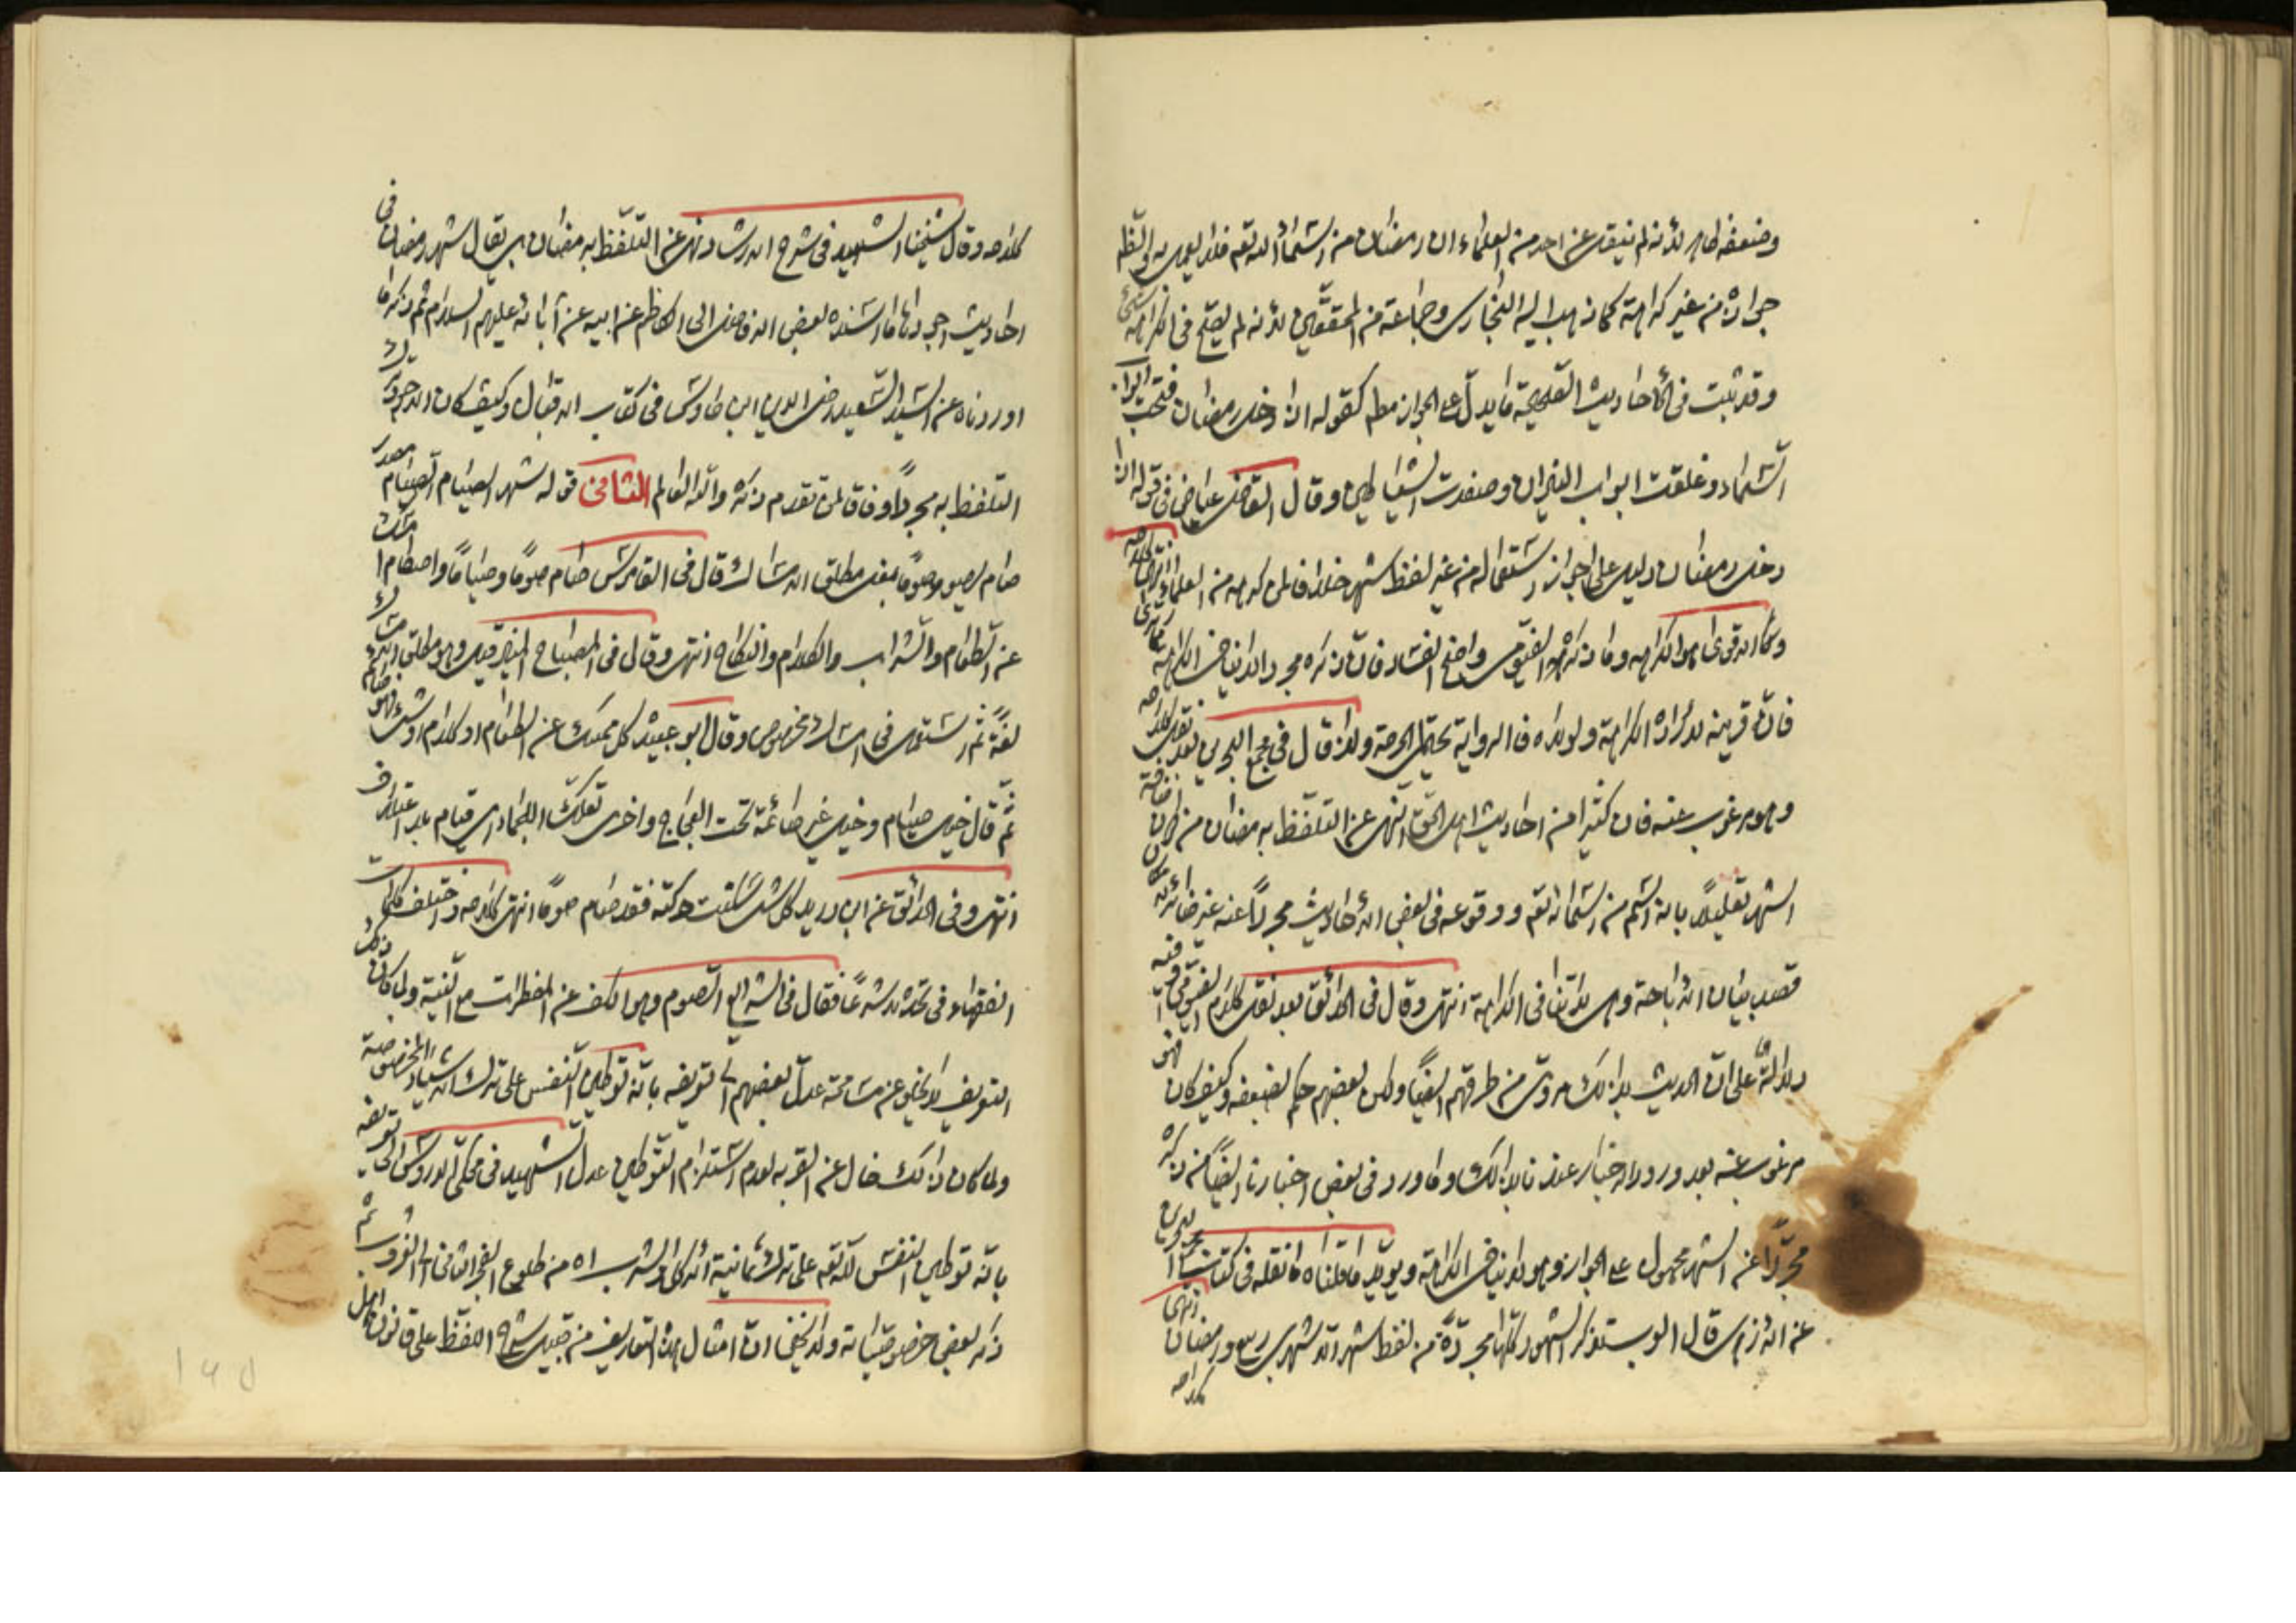 وضعفه ظاهر لأنه لم ينقل عن احد من العلماء ان رمضان من اسماء الله تعه فلا يعمل به والظاهر
جوازه من غير كراهة كما ذهب اليه البخاري وجماعة من المحققين لأنه لم يصح في الكراهة شئ
وقد ثبت في الأحاديث الصحيحة ما يدل على الجواز مطم كقوله اذا دخل رمضان فتحت ابواب
السماء وغلقت ابواب النيران وصفدت الشياطين وقال القاضي عياض في قوله اذا
دخل رمضان دليل على جواز استعماله من غير لفظ شهر خلافا لمن كرهه من العلماء انتهى كلامه
وكان الاقوى هو الكراهه وما ذكره الفيومي واضح الفساد فان ذكره مجردا لا ينافي الكراهة
فان قرينه لارادة الكراهة ولولاه فالرواية تحتمل الحرمة ولذا قال في مجمع البحرين بعد نقل كلامه
وهو مرغوب عنه فان كثيرا من احاديث اهل الحق النهي عن التلفظ برمضان من دون اضافة
الشهر تعليلا بانه اسم من اسمائه تعه ووقوعه في بعض الأحاديث مجردا عنه غير ضائر لامكان
قصد بيان الاباحة وهي لا تنافي الكراهة انتهى وقال في الحدائق بعد نقل كلام الفيومي وفيه
دلالة على ان الحديث بذلك مروي من طرقهم ايضا ولكن بعضهم حكم بضعفه وكيف كان فهو
مرغوب عنه بعد ورود الاخبار عندنا بذلك وما ورد في بعض اخبارنا ايضا من ذكره
مجردا عن الشهر محمول على الجواز وهو لا ينافي الكراهة ويؤيد ما قلناه ما نقله في كتاب مجمع البحرين
عن الازهري قال العرب تذكر الشهور كلها مجردة من لفظ شهر الا شهري ربيع ورمضان انتهى
كلامه
كلامه وقال شيخنا الشهيد في شرح الارشاد نهى عن التلفظ برمضان بل يقال شهر رمضان في
احاديث اجودها ما اسنده بعض الافاضل الى الكاظم عن ابيه عن آبائه عليهم السلام ثم ذكر ما
اوردناه عن السيد السعيد رضي الدين ابن طاوس في كتاب الاقبال وكيف كان فالاحوط ترك
التلفظ به مجردا وفاقا لمن تقدم ذكره والله العالم الثاني قوله شهر الصيام الصيام مصدر
صام يصوم صوما بمعنى مطلق الامساك قال في القاموس صام صوما وصياما واصطام امسك
عن الطعام والشراب والكلام والنكاح انتهى وقال في المصباح المنير قيل وهو مطلق الامساك
لغة ثم استعمل في امساك مخصوص وقال ابو عبيدة كل ممسك عن الطعام او كلام او سير فهو صائم
ثم قال خيل صيام وخيل غير صائمة تحت العجاج واخرى تعلك اللجما اي قيام بلا اعتلاف
انتهى وفي الحدائق عن ابن دريد كل شئ سكنت حركته فقد صام صوما انتهى كلامه واختلف كلمات
الفقهاء في تحديده شرعا فقال في الشرايع الصوم وهو الكف عن المفطرات مع النية ولما كان ذلك
التعريف لا يخلو عن مسامحة عدل بعضهم الى تعريفه بانه توطين النفس على ترك الاشياء المخصوصة
ولما كان ذلك خال عن القربه لعدم استلزام التوطين عدل الشهيد في محكي الدروس الى تعريفه
بانه توطين النفس لله تعه على ترك ثمانية الأكل والشرب اه من طلوع الفجر الثاني الى الغروب ثم
ذكر بعض خصوصياته ولا يخفى ان امثال هذه التعاريف من قبيل شرح اللفظ على قانون اهل
١٩٥